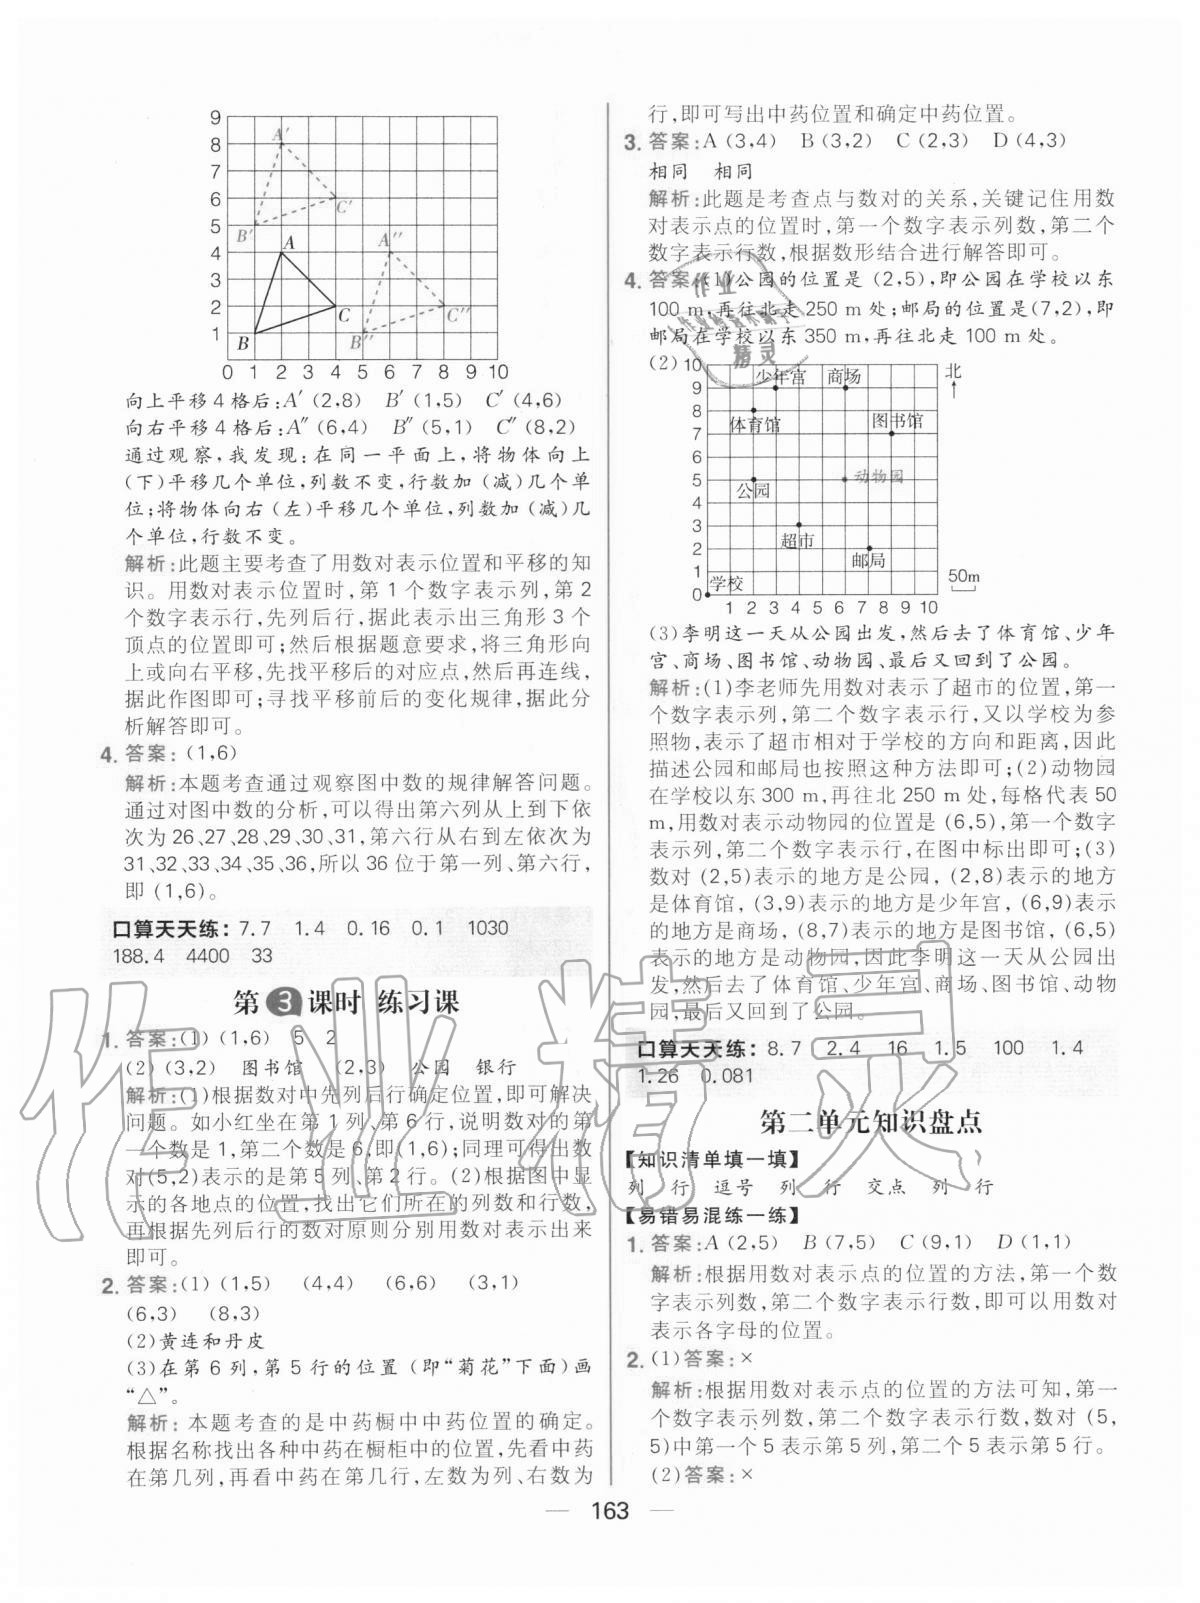 9
8
7
6
5
4
3
2
1
A′
C′
B′
A
A″
C
C″
B
B″
0 1 2 3 4 5 6 7 8 9 10
向上平移4格后:A′(2,8) B′(1,5) C′(4,6)
向右平移4格后:A″(6,4) B″(5,1) C″(8,2)
通过观察,我发现:在同一平面上,将物体向上
(下)平移几个单位,列数不变,行数加(减)几个单
位;将物体向右(左)平移几个单位,列数加(减)几
个单位,行数不变。
解析:此题主要考查了用数对表示位置和平移的知
识。用数对表示位置时,第1个数字表示列,第2
个数字表示行,先列后行,据此表示出三角形3个
顶点的位置即可;然后根据题意要求,将三角形向
上或向右平移,先找平移后的对应点,然后再连线,
据此作图即可;寻找平移前后的变化规律,据此分
析解答即可。
4. 答案:(1,6)
解析:本题考查通过观察图中数的规律解答问题。
通过对图中数的分析,可以得出第六列从上到下依
次为26、27、28、29、30、31,第六行从右到左依次为
31、32、33、34、35、36,所以36位于第一列、第六行,
即(1,6)。
口算天天练: 7.7 1.4 0.16 0.1 1030
188.4 4400 33
第3课时 练习课
1. 答案:(1)(1,6) 5 2
(2)(3,2) 图书馆 (2,3) 公园 银行
解析:(1)根据数对中先列后行确定位置,即可解决
问题。如小红坐在第1列、第6行,说明数对的第
一个数是1,第二个数是6,即(1,6);同理可得出数
对(5,2)表示的是第5列、第2行。(2)根据图中显
示的各地点的位置,找出它们所在的列数和行数,
再根据先列后行的数对原则分别用数对表示出来
即可。
2. 答案:(1)(1,5) (4,4) (6,6) (3,1)
(6,3) (8,3)
(2)黄连和丹皮
(3)在第6列,第5行的位置(即“菊花”下面)画
“△”。
解析:本题考查的是中药橱中中药位置的确定。
根据名称找出各种中药在橱柜中的位置,先看中药
在第几列,再看中药在第几行,左数为列、右数为
行,即可写出中药位置和确定中药位置。
3. 答案:A(3,4) B(3,2) C(2,3) D(4,3)
相同 相同
解析:此题是考查点与数对的关系,关键记住用数
对表示点的位置时,第一个数字表示列数,第二个
数字表示行数,根据数形结合进行解答即可。
4. 答案:(1)公园的位置是(2,5),即公园在学校以东
100 m,再往北走250 m处;邮局的位置是(7,2),即
邮局在学校以东350 m,再往北走100 m处。
(2)
10
9
8
7
6
5
4
3
2
1
0
少年宫 商场
北
体育馆 图书馆
公园 动物园
超市
邮局
学校
50m
1 2 3 4 5 6 7 8 9 10
(3)李明这一天从公园出发,然后去了体育馆、少年
宫、商场、图书馆、动物园、最后又回到了公园。
解析:(1)李老师先用数对表示了超市的位置,第一
个数字表示列,第二个数字表示行,又以学校为参
照物,表示了超市相对于学校的方向和距离,因此
描述公园和邮局也按照这种方法即可;(2)动物园
在学校以东300 m,再往北250 m处,每格代表50
m,用数对表示动物园的位置是(6,5),第一个数字
表示列,第二个数字表示行,在图中标出即可;(3)
数对(2,5)表示的地方是公园,(2,8)表示的地方
是体育馆,(3,9)表示的地方是少年宫,(6,9)表示
的地方是商场,(8,7)表示的地方是图书馆,(6,5)
表示的地方是动物园,所以李明这一天从公园出
发,然后去了体育馆、少年宫、商场、图书馆、动物
园,最后又回到了公园。
口算天天练: 8.7 2.4 16 1.5 100 1.4
1.26 0.081
第二单元知识盘点
【知识清单填一填】
列 行 逗号 列 行 交点 列 行
【易错易混练一练】
1. 答案:A(2,5) B(7,5) C(9,1) D(1,1)
解析:根据用数对表示点的位置的方法,第一个数
字表示列数,第二个数字表示行数,即可以用数对
表示各字母的位置。
2. (1)答案:×
解析:根据用数对表示点的位置的方法可知,第一
个数字表示列数,第二个数字表示行数,数对(5,
5)中第一个5表示第5列,第二个5表示第5行。
(2)答案:×
163
作业精灵
作业
精灵